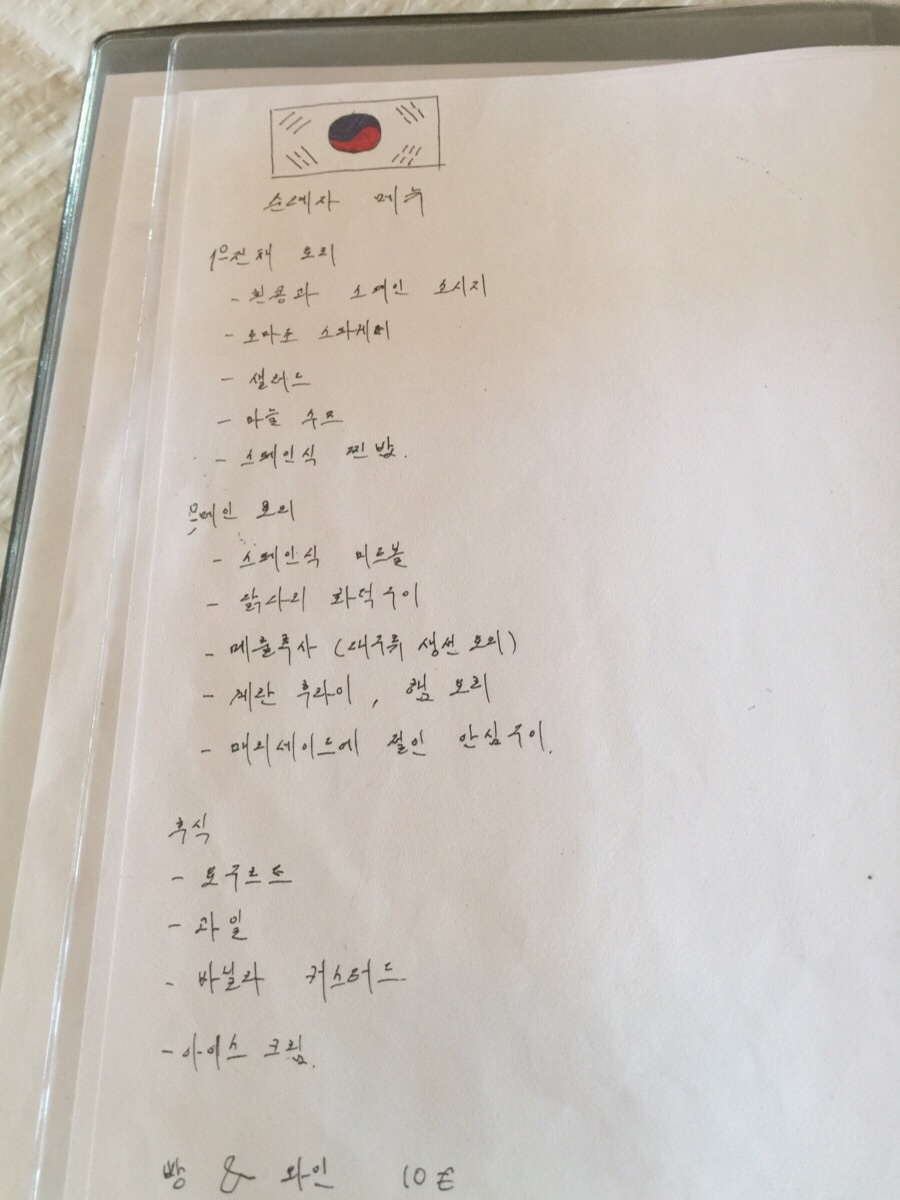 순례자 메뉴
전채 요리
- 흰콩과 스페인 소시지
- 토마토 스파게티
- 샐러드
- 마늘 수프
- 스페인식 찐밥.
메인 요리
- 스페인식 미트볼
- 닭다리 화덕구이
- 메를루사 (대구류 생선 요리)
- 계란 후라이, 햄 요리
- 매리네이드에 절인 안심구이.
후식
- 요구르트
- 과일
- 바닐라 커스터드
- 아이스 크림.
빵 & 와인 10 €